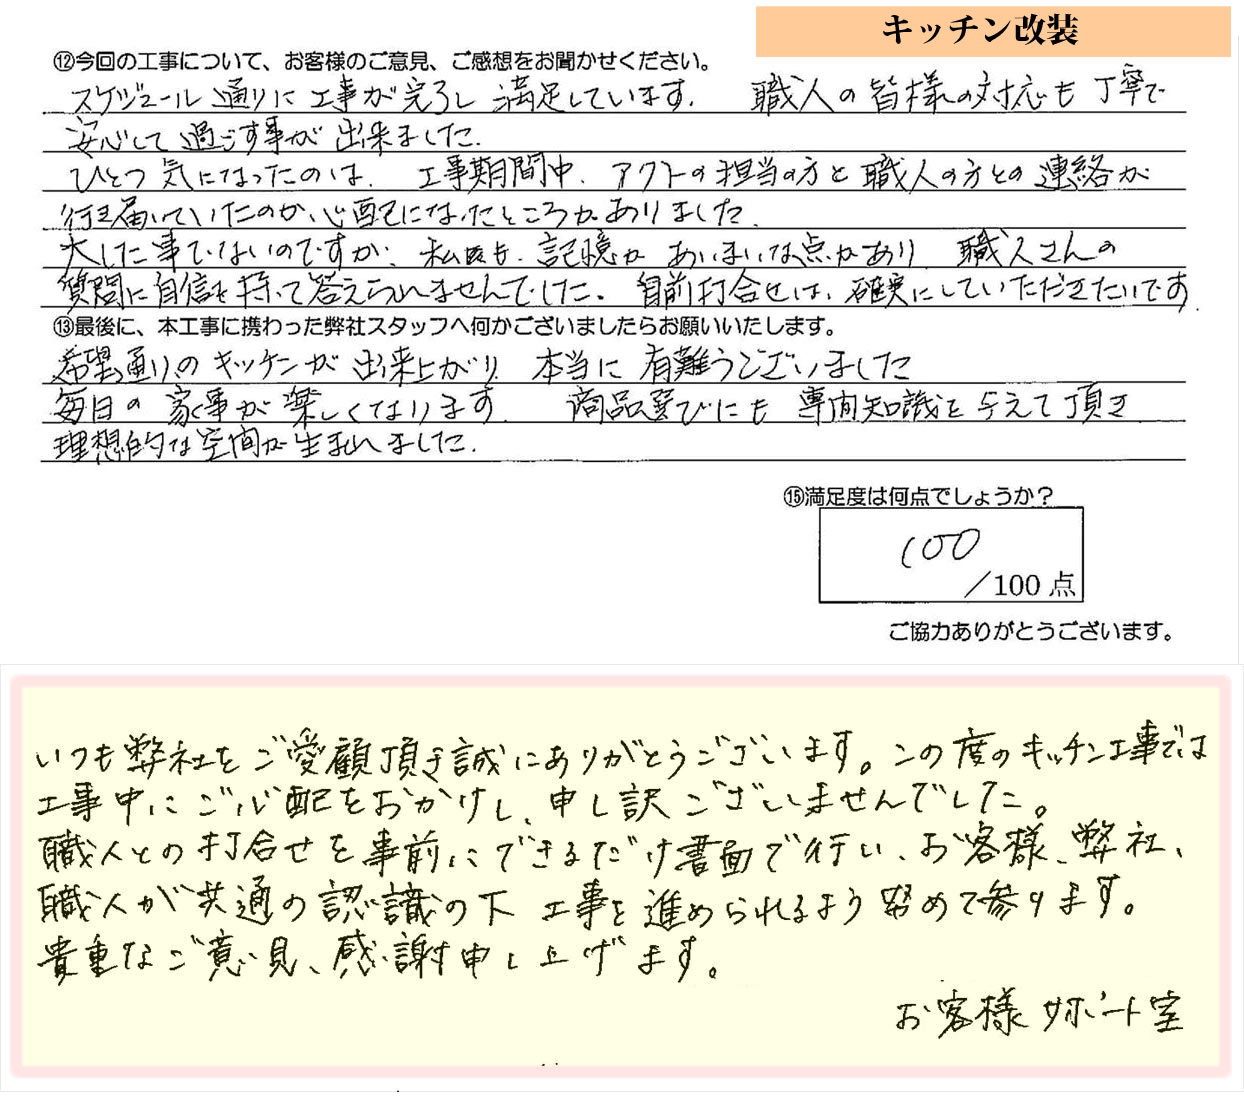 キッチン改装
⑫今回の工事について、お客様のご意見、ご感想をお聞かせください。
スケジュール通りに工事が完了し 満足しています. 職人の皆様の対応も丁寧で
安心して過ごす事が出来ました.
ひとつ気になったのは. 工事期間中. アクトの担当の方と職人の方との連絡が
行き届いていたのか、心配になったところがありました.
大した事でないのですが、私も. 記憶が あいまいな点があり 職人さんの
質問に自信を持って答えられませんでした。 事前打合せは、確実にしていただきたいです.
⑬最後に、本工事に携わった弊社スタッフへ何かございましたらお願いいたします。
希望通りのキッチンが出来上がり 本当に有難うございました
毎日の家事が楽しくなります. 商品選びにも専門知識を与えて頂き
理想的な空間が生まれました.
⑮満足度は何点でしょうか?
100
/100 点
ご協力ありがとうございます。
いつも弊社をご愛顧頂き誠にありがとうございます。この度のキッチン工事では
工事中にご心配をおかけし、申し訳ございませんでした。
職人との打合せを事前にできるだけ書面で行い、お客様、弊社、
職人が共通の認識の下 工事を進められるよう努めて参ります。
貴重なご意見、感謝申し上げます。
お客様サポート室